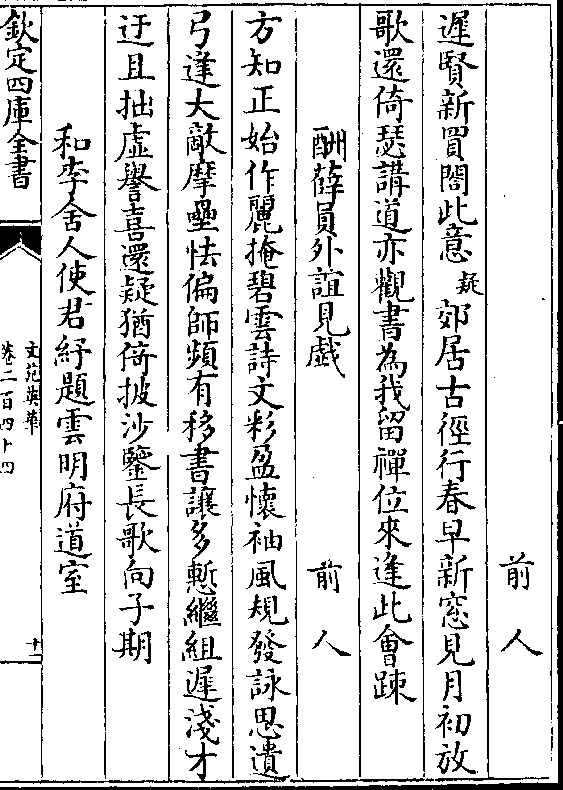 前人
遲賢新買閣此意疑郊居古徑行春早新窓見月初放
歌還倚瑟講道亦觀書為我留禪位來逢此會踈
酬薛員外誼見戲
前人
方知正始作麗掩碧雲詩文彩盈懷袖風規發詠思遺
弓逢大敵摩壘怯偏師頻有移書讓多慙繼組遲淺才
迂且拙虛譽喜還疑猶倚披沙鑒長歌向子期
和李舍人使君紓題雲明府道室
欽定四庫全書
文苑英華
卷二百四十四
十一